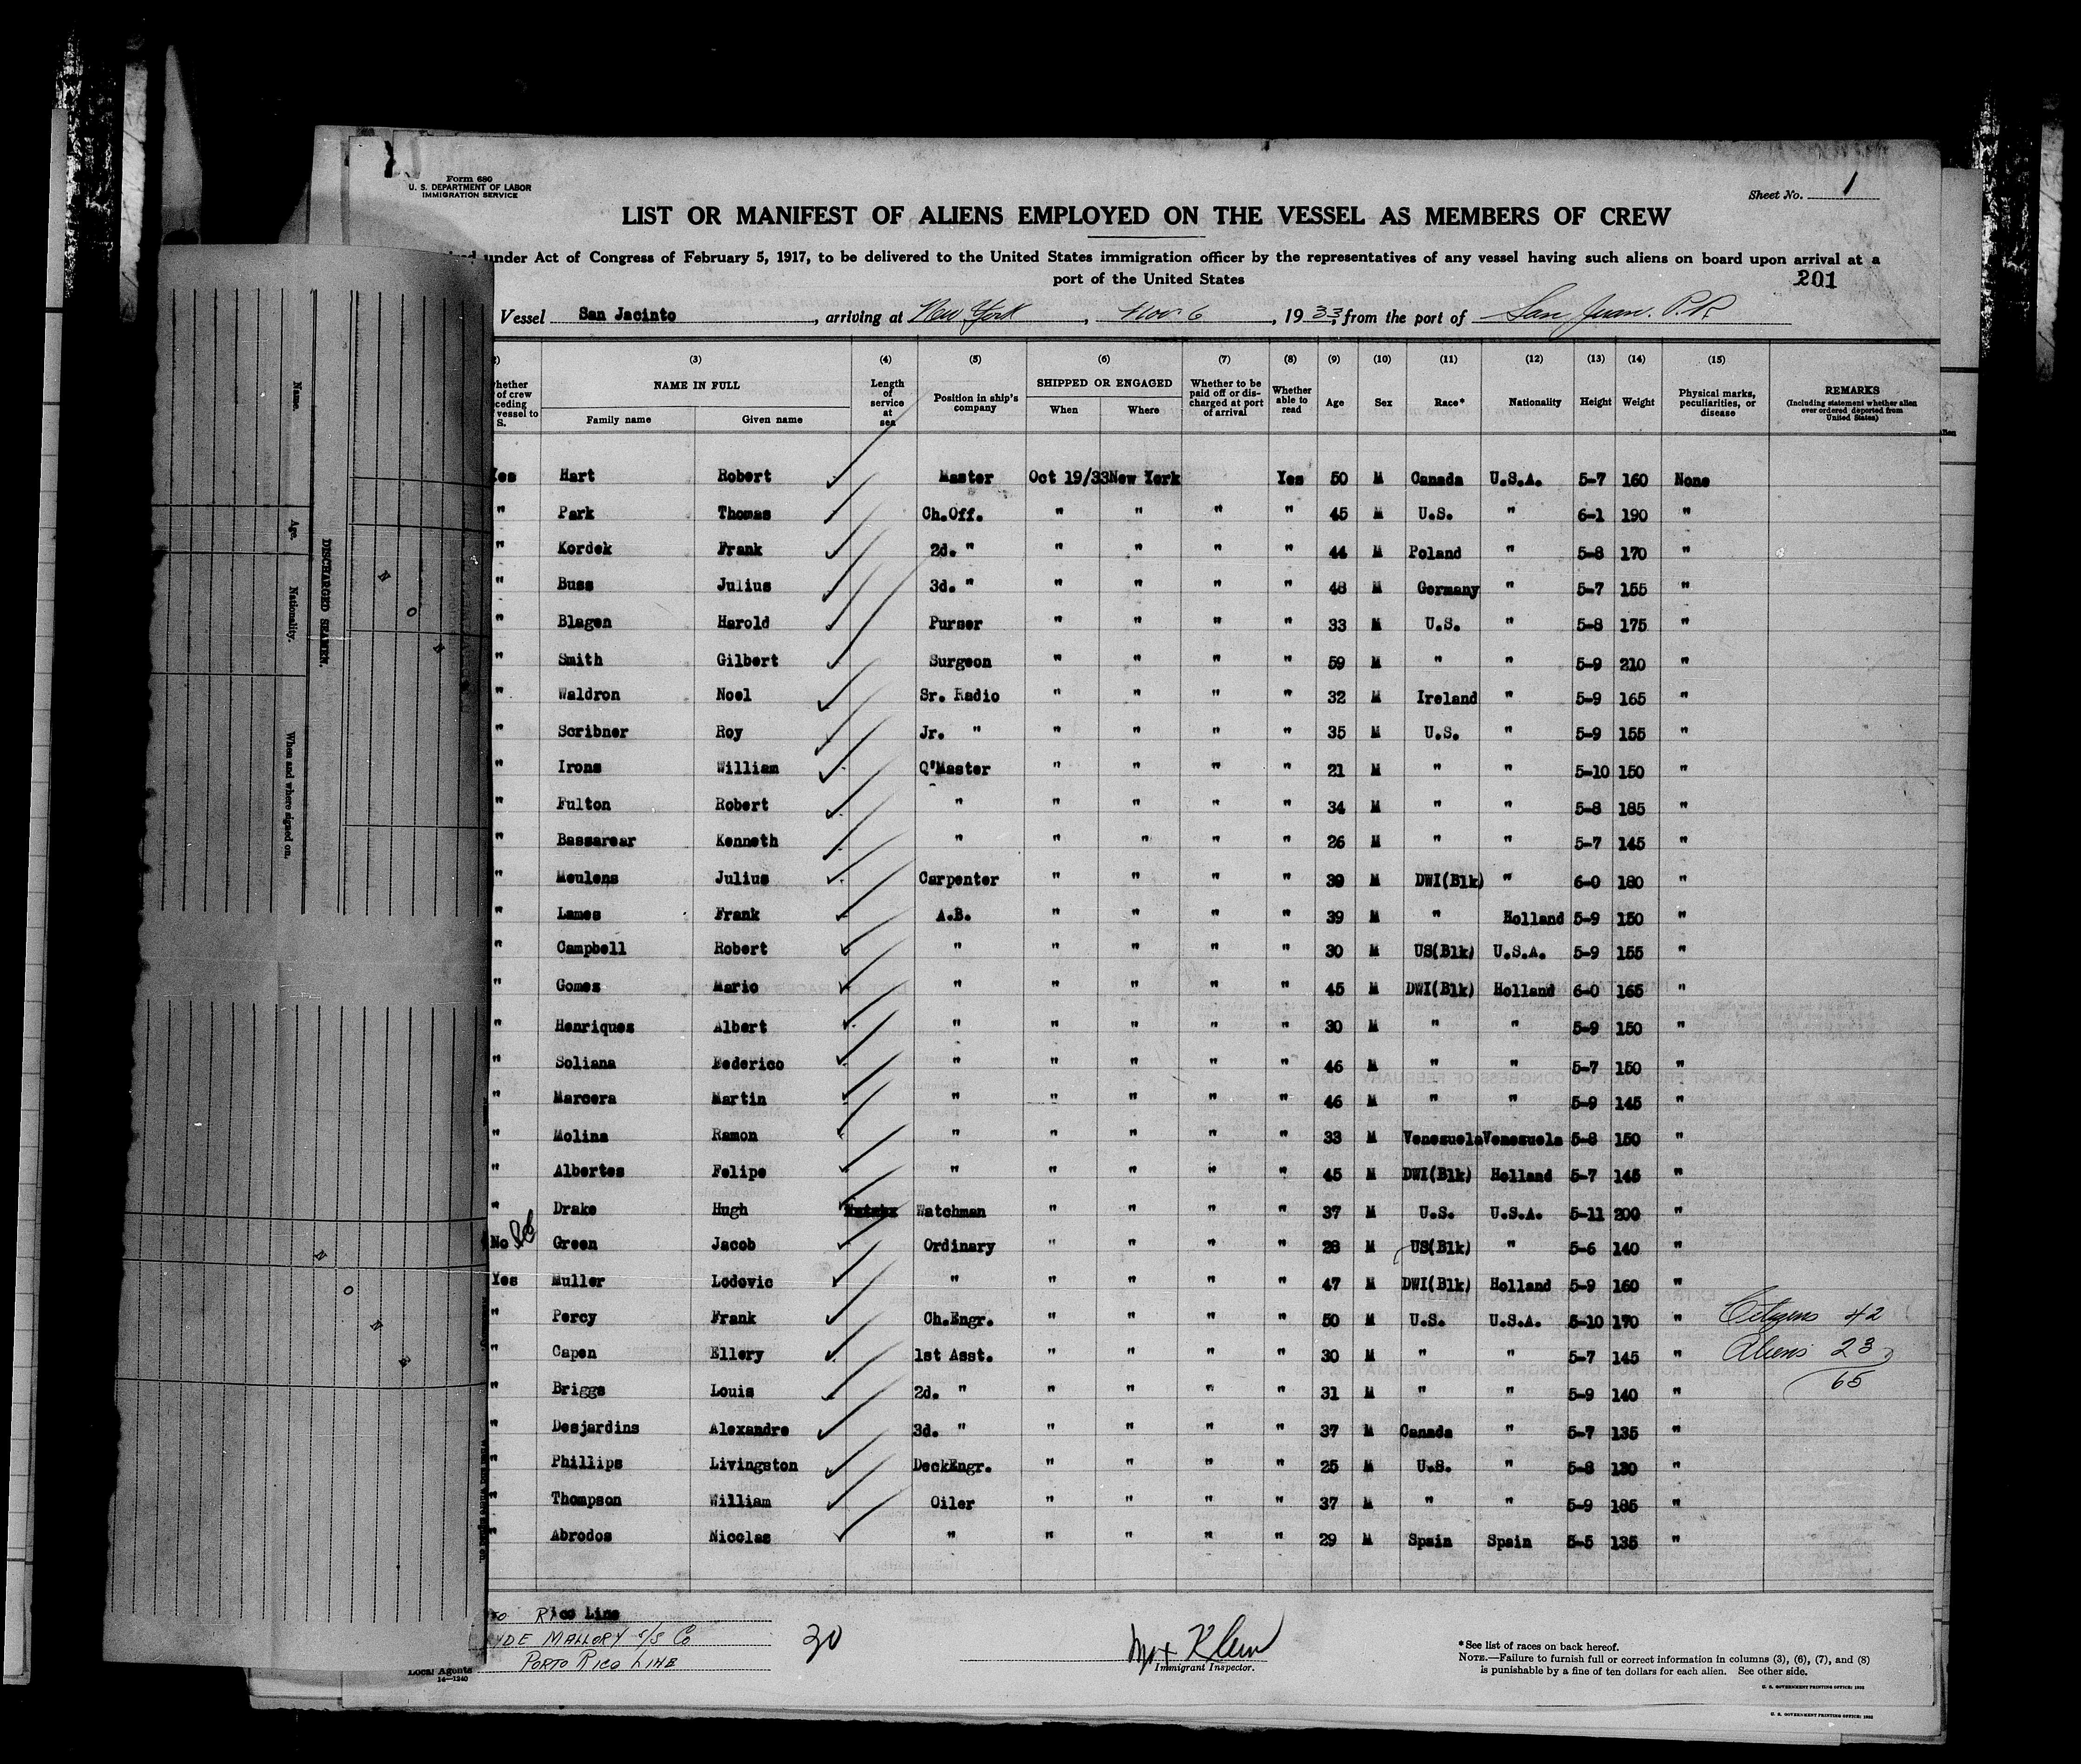 Form 680
U. S. DEPARTMENT OF LABOR
IMMIGRATION SERVICE
Sheet No. 1
LIST OR MANIFEST OF ALIENS EMPLOYED ON THE VESSEL AS MEMBERS OF CREW
under Act of Congress of February 5, 1917, to be delivered to the United States immigration officer by the representatives of any vessel having such aliens on board upon arrival at a
port of the United States
201
Vessel San Jacinto, arriving at New York, Nov 6, 1933, from the port of San Juan. P.R.
(3) (4) (5) (6) (7) (8) (9) (10) (11) (12) (13) (14) (15)
NAME IN FULL
Family name Given name
Length of service at sea
Position in ship's company
SHIPPED OR ENGAGED
When Where
Whether to be paid off or discharged at port of arrival
Whether able to read
Age Sex Race* Nationality Height Weight
Physical marks, peculiarities, or disease
REMARKS
(Including statement whether alien ever ordered deported from United States)
Yes Hart Robert Master Oct 19/33 New York Yes 50 M Canada U.S.A. 5-7 160 None
" Park Thomas Ch.Off. " " " " 45 M U.S. " 6-1 190 "
" Kordek Frank 2d. " " " " " 44 M Poland " 5-8 170 "
" Buss Julius 3d. " " " " " 48 M Germany " 5-7 155 "
" Blagen Harold Purser " " " " 33 M U.S. " 5-8 175 "
" Smith Gilbert Surgeon " " " " 59 M " " 5-9 210 "
" Waldron Noel Sr. Radio " " " " 32 M Ireland " 5-9 165 "
" Scribner Roy Jr. " " " " " 35 M U.S. " 5-9 155 "
" Irons William Q'Master " " " " 21 M " " 5-10 150 "
" Fulton Robert " " " " " 34 M " " 5-8 185 "
" Bassarear Kenneth " " " " " 26 M " " 5-7 145 "
" Meulens Julius Carpenter " " " " 39 M DWI(Blk) " 6-0 180 "
" Lames Frank A.B. " " " " 39 M " Holland 5-9 150 "
" Campbell Robert " " " " " 30 M US(Blk) U.S.A. 5-9 155 "
" Gomes Mario " " " " " 45 M DWI(Blk) Holland 6-0 165 "
" Henriques Albert " " " " " 30 M " " 5-9 150 "
" Soliana Federico " " " " " 46 M " " 5-7 150 "
" Marcera Martin " " " " " 46 M " " 5-9 145 "
" Molina Ramon " " " " " 33 M Venesuela Venesuela 5-8 150 "
" Albertes Felipe " " " " " 45 M DWI(Blk) Holland 5-7 145 "
" Drake Hugh Watchman " " " " 37 M U.S. U.S.A. 5-11 200 "
No Green Jacob Ordinary " " " " 28 M US(Blk) " 5-6 140 "
Yes Muller Lodovic " " " " " 47 M DWI(Blk) Holland 5-9 160 "
" Percy Frank Ch.Engr. " " " " 50 M U.S. U.S.A. 5-10 170 " Citizens 42
" Capen Ellery 1st Asst. " " " " 30 M " " 5-7 145 " Aliens 23
" Briggs Louis 2d. " " " " " 31 M " " 5-9 140 " 65
" Desjardins Alexandre 3d. " " " " " 37 M Canada " 5-7 135 "
" Phillips Livingston DeckEngr. " " " " 25 M U.S. " 5-8 130 "
" Thompson William Oiler " " " " 37 M " " 5-9 185 "
" Abrodos Nicolas " " " " " 29 M Spain Spain 5-5 135 "
Rico Line
MALLORY S/S Co
PORTO RICO LINE
Local Agents
14-1240
30
Max Klein
Immigrant Inspector.
*See list of races on back hereof.
NOTE.—Failure to furnish full or correct information in columns (3), (6), (7), and (8)
is punishable by a fine of ten dollars for each alien. See other side.
U. S. GOVERNMENT PRINTING OFFICE: 1932
U. S. GOVERNMENT PRINTING OFFICE: 1932
DISCHARGED SEAMEN.
Name.
Age.
Nationality.
When and where signed on.
NON
NONE